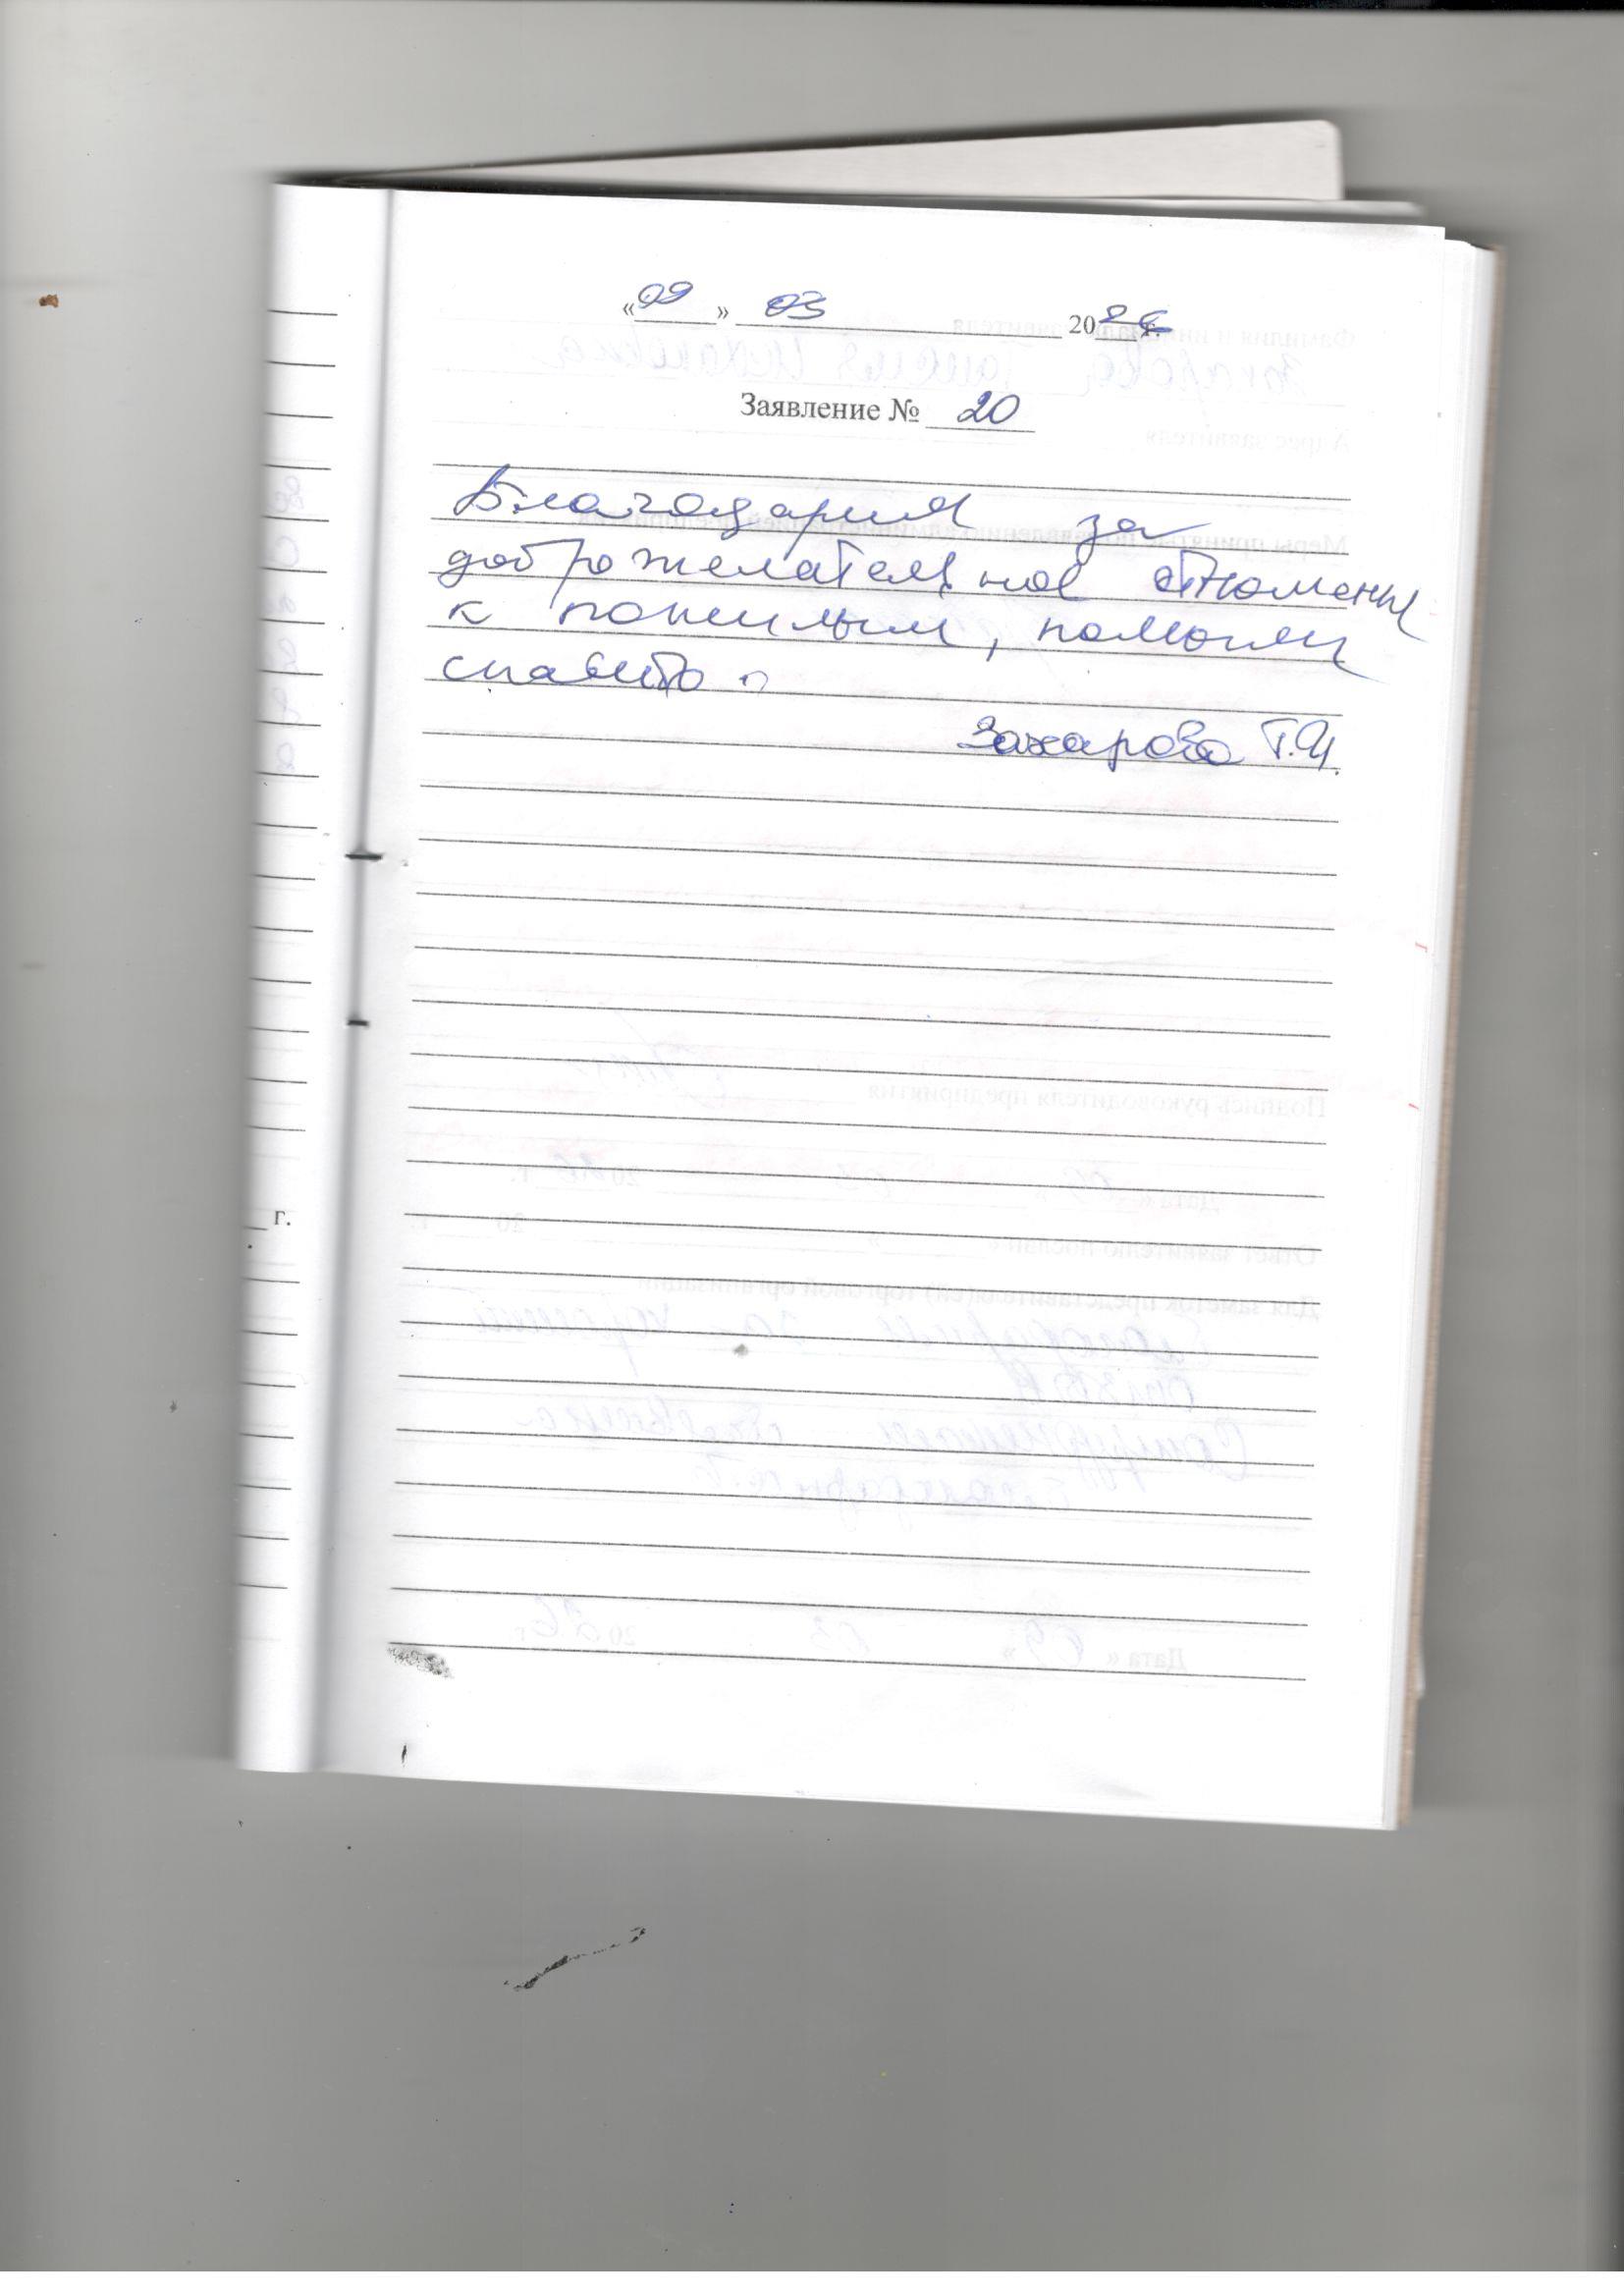 «09» 03 2026 г.
Заявление № 20
Благодарим за
доброжелательное отношение
к пожилым, помогли
спасибо.
Захарова Т.И.
г.